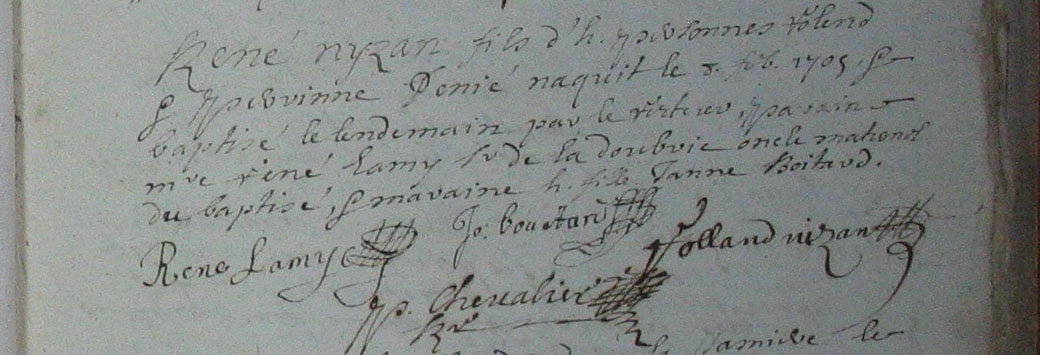 René nyzan fils d'h. personnes rolend
& perrinne Denié naquit le 8. feb. 1705, &
baptisé le lendemain par le recteur, parain
mre réné Lamy sr de la doubrie oncle maternel
du baptisé, & maraine h. fille Janne Boitard.
Rene Lamy Jo: bouetard Rolland nizan
p. Chevalier
Rr
le